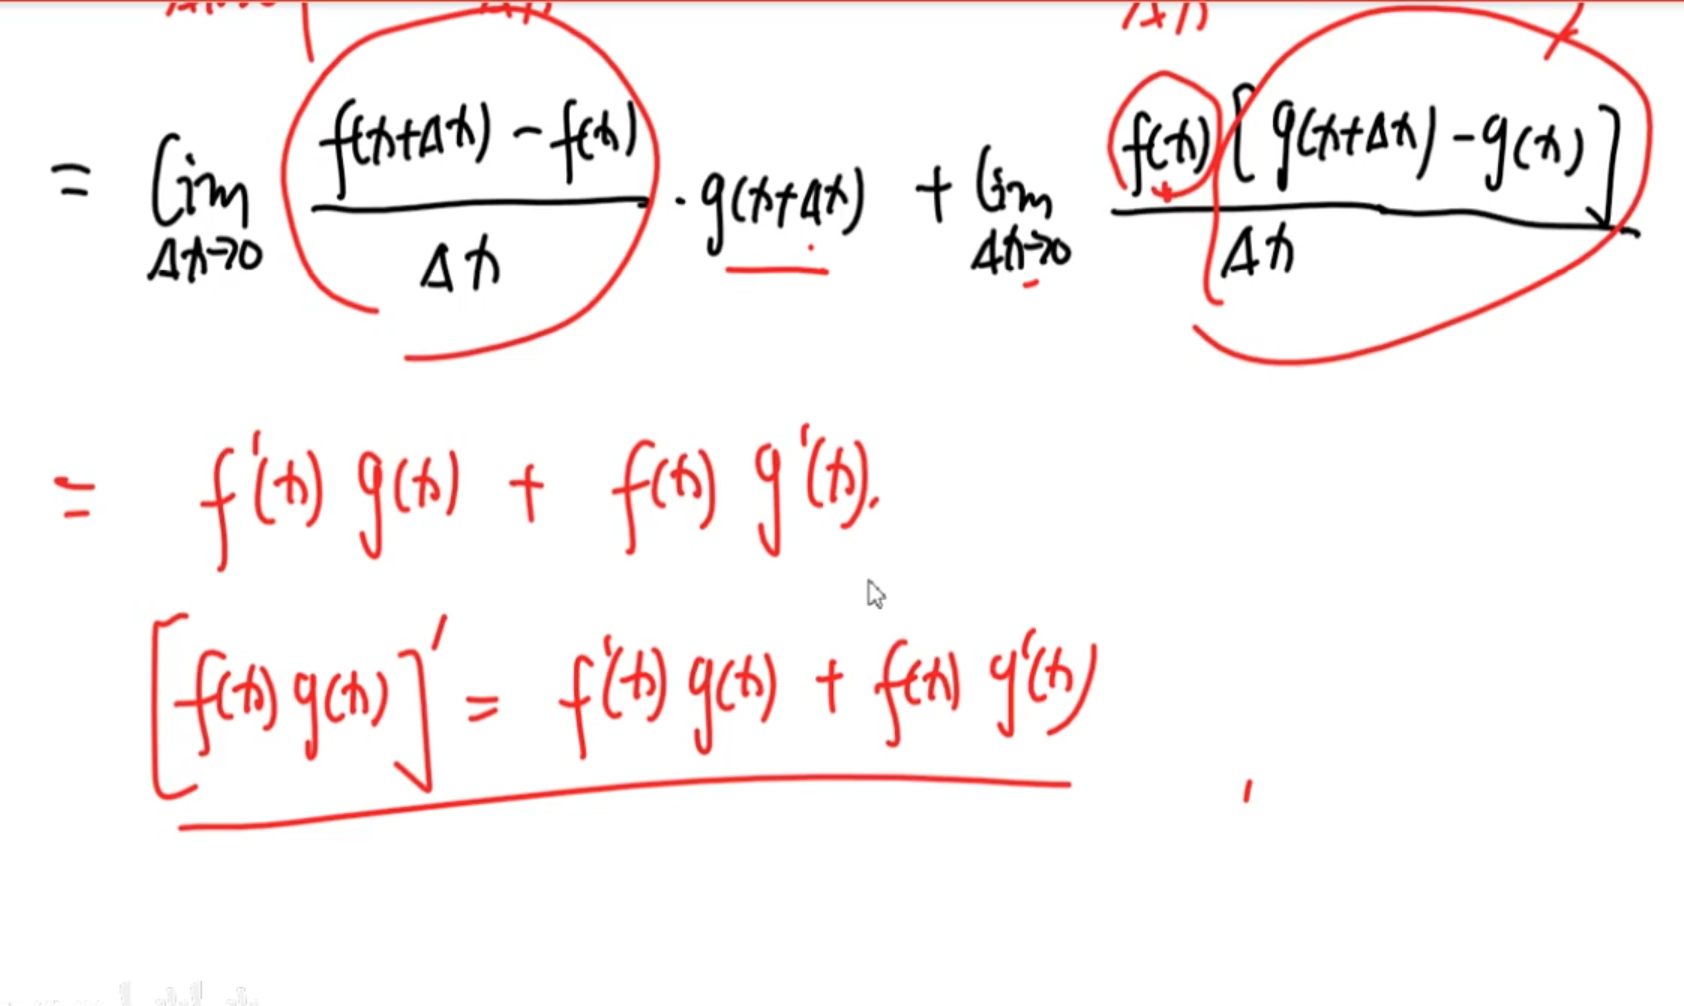 = lim Δx→0 f(x+Δx) - f(x) / Δx · g(x+Δx) + lim Δx→0 f(x) [ g(x+Δx) - g(x) ] / Δx
= f'(x) g(x) + f(x) g'(x).
[f(x) g(x)]' = f'(x) g(x) + f(x) g'(x)